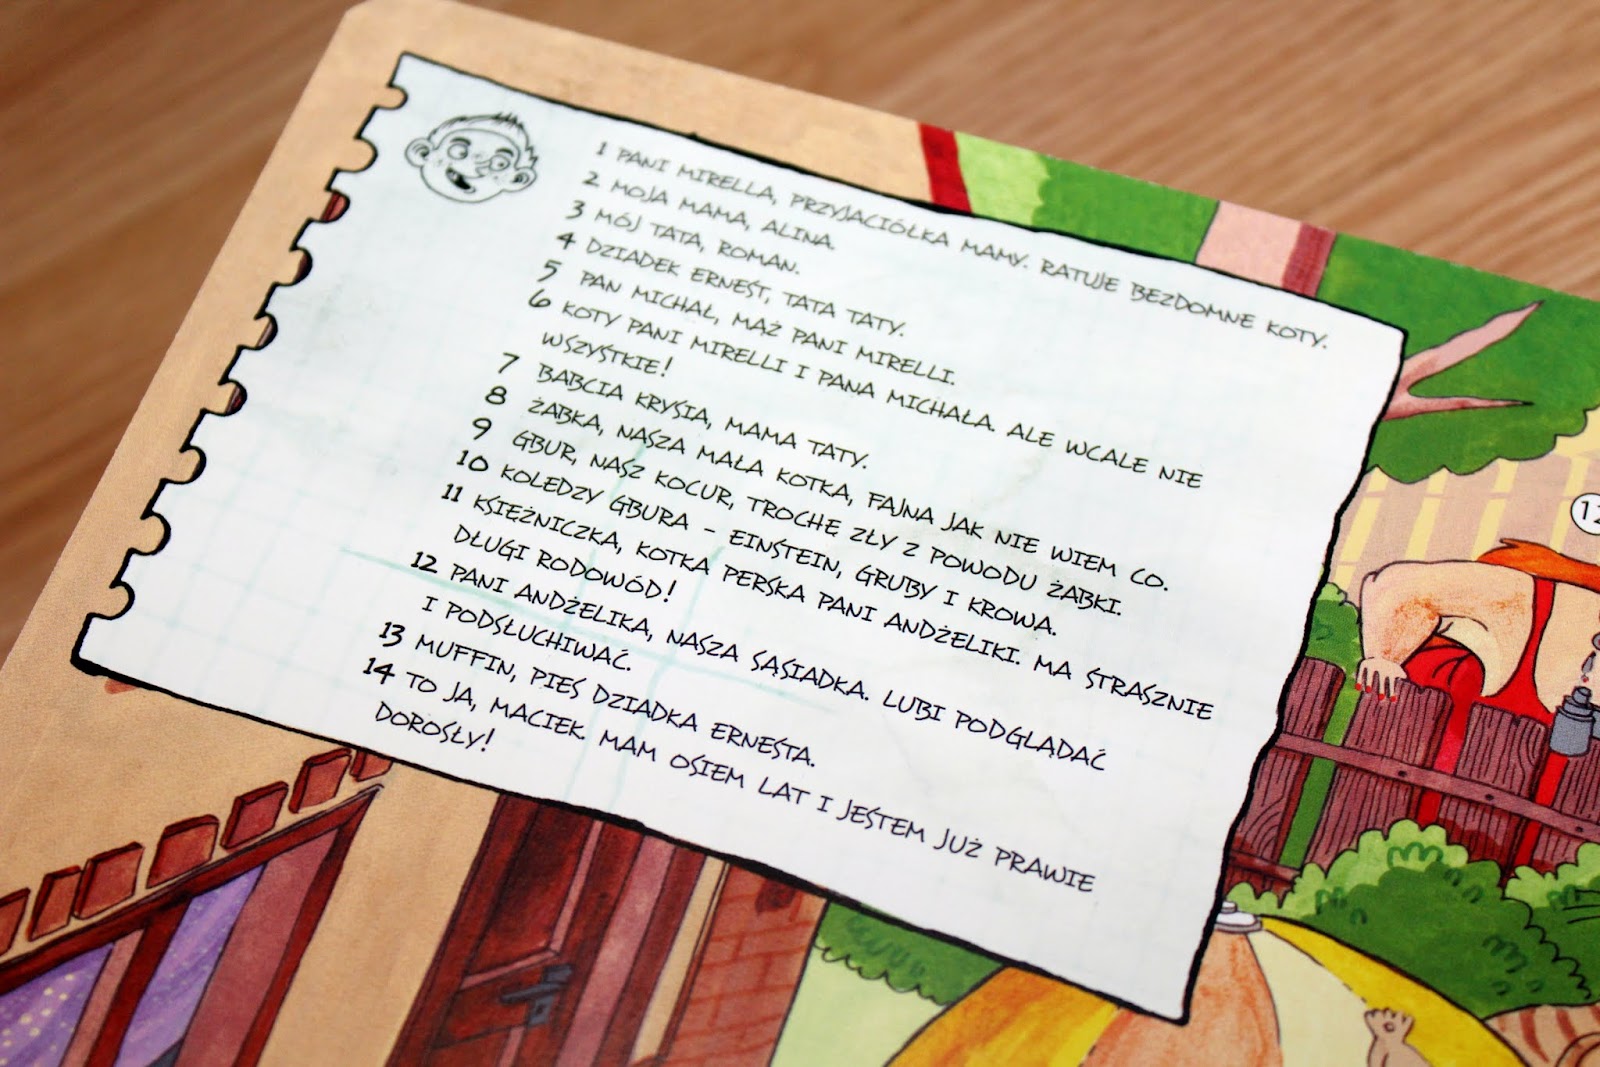 1 PANI MIRELLA, PRZYJACIÓŁKA MAMY. RATUJE BEZDOMNE KOTY.
2 MOJA MAMA, ALINA.
3 MÓJ TATA, ROMAN.
4 DZIADEK ERNEST, TATA TATY.
5 PAN MICHAŁ, MĄŻ PANI MIRELLI.
6 KOTY PANI MIRELLI I PANA MICHAŁA. ALE WCALE NIE
WSZYSTKIE!
7 BABCIA KRYSIA, MAMA TATY.
8 ŻABKA, NASZA MAŁA KOTKA, FAJNA JAK NIE WIEM CO.
9 GBUR, NASZ KOCUR, TROCHĘ ZŁY Z POWODU ŻABKI.
10 KOLEDZY GBURA – EINSTEIN, GRUBY I KROWA.
11 KSIĘŻNICZKA, KOTKA PERSKA PANI ANDŻELIKI. MA STRASZNIE
DŁUGI RODOWÓD!
12 PANI ANDŻELIKA, NASZA SĄSIADKA. LUBI PODGLĄDAĆ
I PODSŁUCHIWAĆ.
13 MUFFIN, PIES DZIADKA ERNESTA.
14 TO JA, MACIEK. MAM OSIEM LAT I JESTEM JUŻ PRAWIE
DOROSŁY!
12